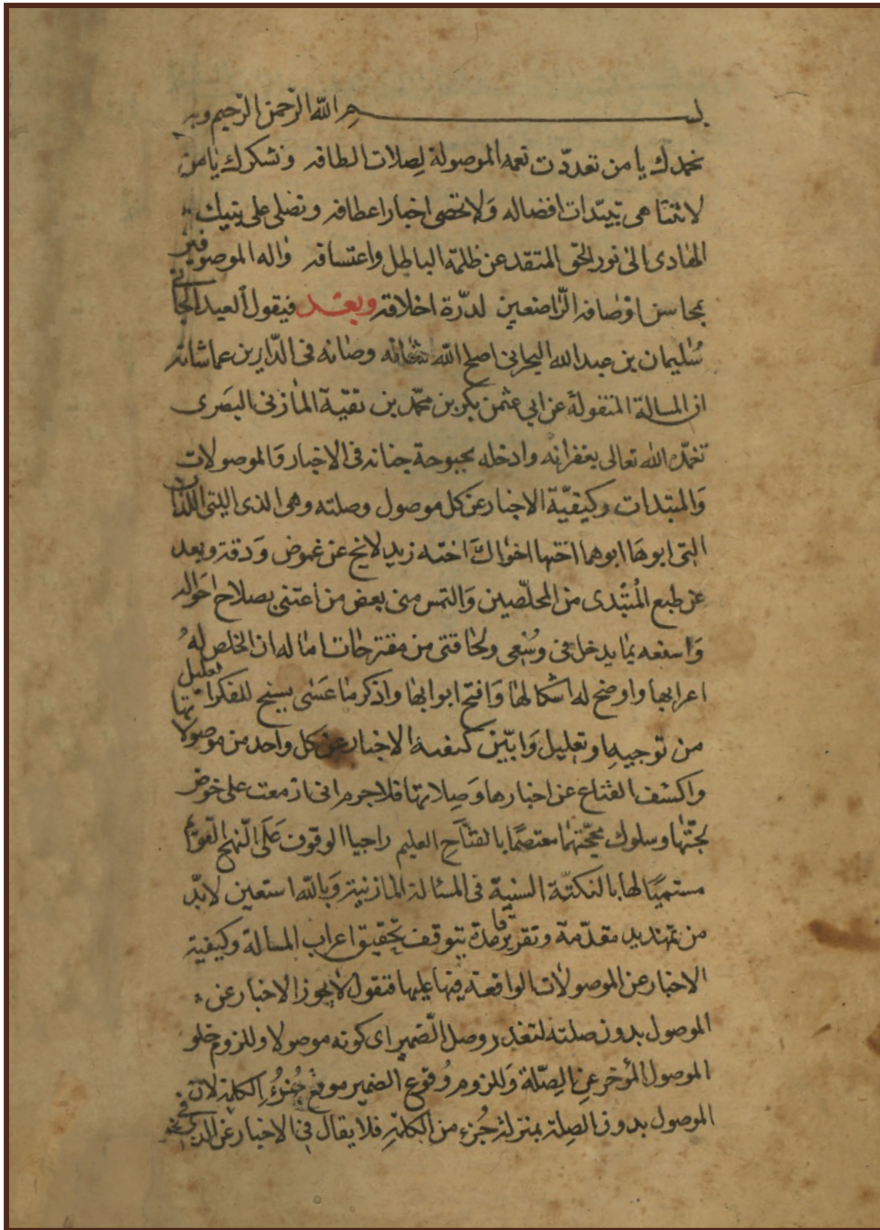 بسم الله الرحمن الرحيم وبه
نحمدك يا من تعددت نعمه الموصولة لصلات الطافه ونشكرك يا من
لا تتناهى تبيدات افضاله ولا تحصى اخبار اعطافه ونصلى على نبيك
الهادى الى نور الحق المنقد عن ظلمة الباطل واعتسافه واله الموصوفين
بمحاسن اوصافه الراضعين لدرة اخلاقه وبعد فيقول العبد الجانى
سليمان بن عبد الله البحرانى اصلح الله شانه وصانه فى الدارين عما شانه
ان المسالة المنقولة عن ابى عثمن بكر بن محمد بن تقية المازنى البصرى
تغمده الله تعالى بغفرانه وادخله بحبوحة جنانه فى الاخبار والموصولات
والمبتدات وكيفية الاخبار عن كل موصول وصلته وهى الذى التى اللذان
التى ابوها ابوهما اختها اخواك اخته زيد لا تخ عن غموض ودقة وبعد
عن طبع المبتدى من المحلصين والتمس منى بعض من اعتنى بصلاح احواله
واسعفه بما يدخل فى وسعى ولحاقتى من مقترحات اماله ان الخلص له
اعرابها واوضح له اشكالها وافتح ابوابها واذكر ما عسى يسنح للفكر
من توجيه او تعليل وابين كيفية الاخبار عن كل واحد من موصولاتها
واكشف القناع عن اخبارها وصلاتها فلا جرم انى ازمعت على خوض
لجتها وسلوك محجتها معتصما بالفتاح العليم راجيا الوقوف على النهج القويم
مستميا لها بالنكتة السنية فى المسالة المازنية وبالله استعين لابد
من تمهيد مقدمة وتقرير قاعدة يتوقف تحقيق اعراب المسالة وكيفية
الاخبار عن الموصولات الواقعة فيها عليها فنقول لا يجوز الاخبار عن
الموصول بدون صلته لتعذر وصل الضمير اى كونه موصولا وللزوم خلو
الموصول المؤخر عن الصلة وللزوم وقوع الضمير موقع جزء الكلمة لان
الموصول بدون الصلة بمنزلة جزء من الكلمة فلا يقال فى الاخبار عن الذى فى نحو